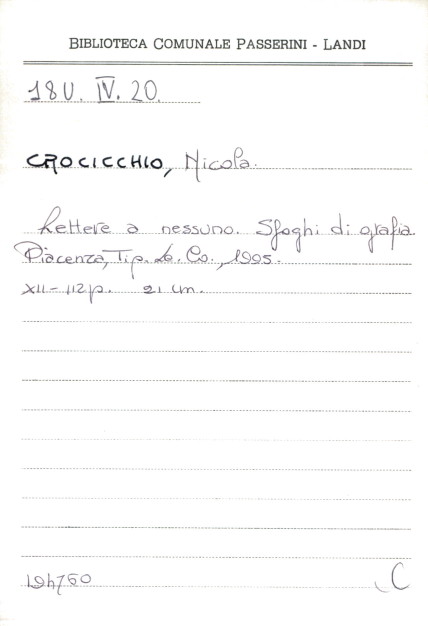 BIBLIOTECA COMUNALE PASSERINI - LANDI
18U. IV. 20.
CROCICCHIO, Nicola.
Lettere a nessuno. Sfoghi di grafia.
Piacenza, Tip. Le. Co., 1995.
XII-112 p. 21 cm.
194760
C